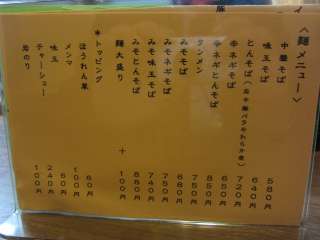 〈麺メニュー〉
中華そば 580円
味玉そば 640円
とんそば 720円
辛ネギそば 650円
辛ネギとんそば 850円
タンメン 750円
みそそば 680円
みそネギそば 750円
みそ味玉そば 740円
みそとんそば 880円
麺大盛り + 100円
*トッピング
ほうれん草 60円
メンマ 100円
味玉 60円
チャーシュー 240円
岩のり 100円